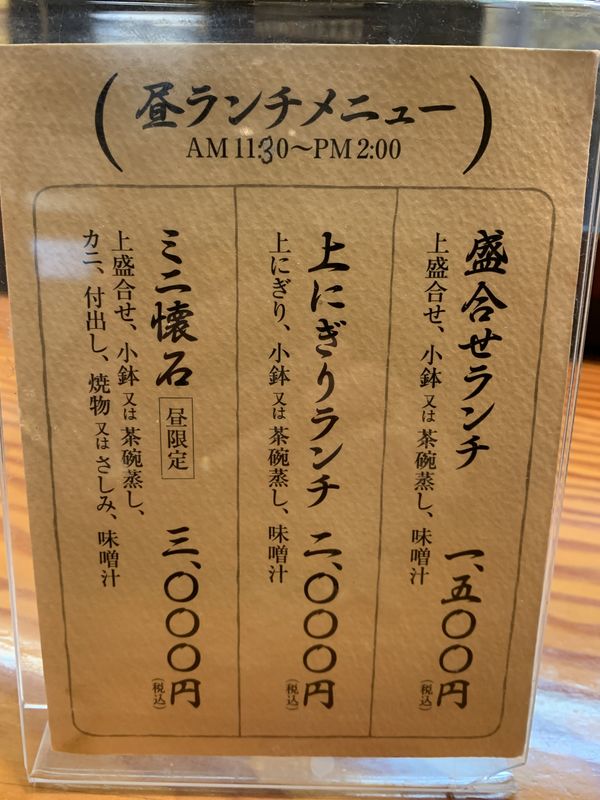 昼ランチメニュー
AM 11:30～PM 2:00
盛合せランチ 一、五〇〇円(税込)
上盛合せ、小鉢又は茶碗蒸し、味噌汁
上にぎりランチ 二、〇〇〇円(税込)
上にぎり、小鉢又は茶碗蒸し、味噌汁
ミニ懐石 昼限定 三、〇〇〇円(税込)
上盛合せ、小鉢又は茶碗蒸し、
カニ、付出し、焼物又はさしみ、味噌汁